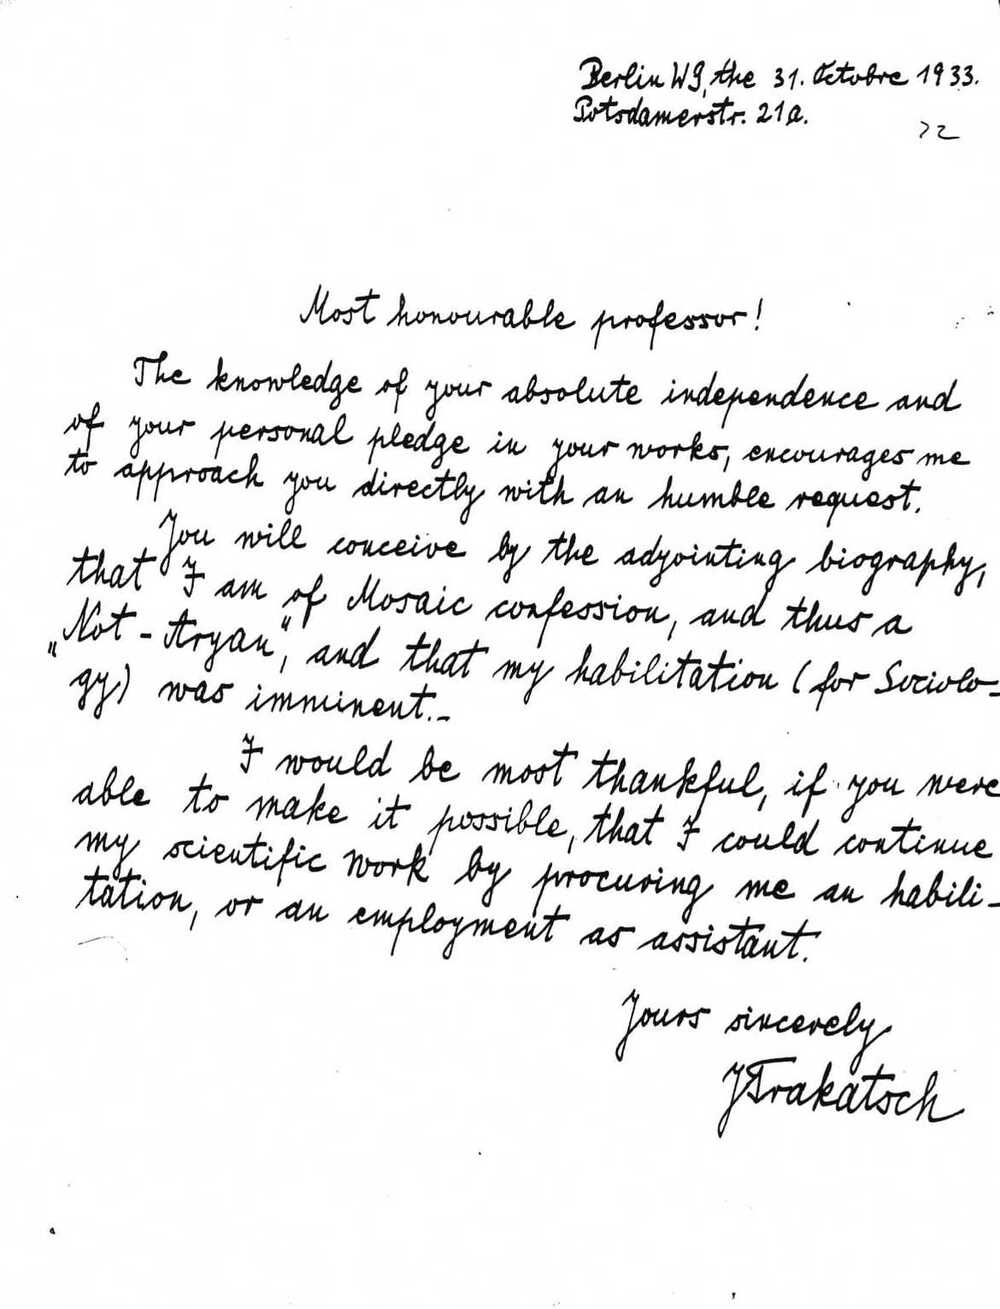 Berlin W9, the 31. Octobre 1933.
Potsdamerstr. 21a.
72
Most honourable professor!
The knowledge of your absolute independence and
of your personal pledge in your works, encourages me
to approach you directly with an humble request.
You will conceive by the adjointing biography,
that I am of Mosaic confession, and thus a
„Not-Aryan", and that my habilitation (for Sociolo-
gy) was imminent.-
I would be most thankful, if you were
able to make it possible, that I could continue
my scientific work by procuring me an habili-
tation, or an employment as assistant.
Yours sincerely
JTrakatsch